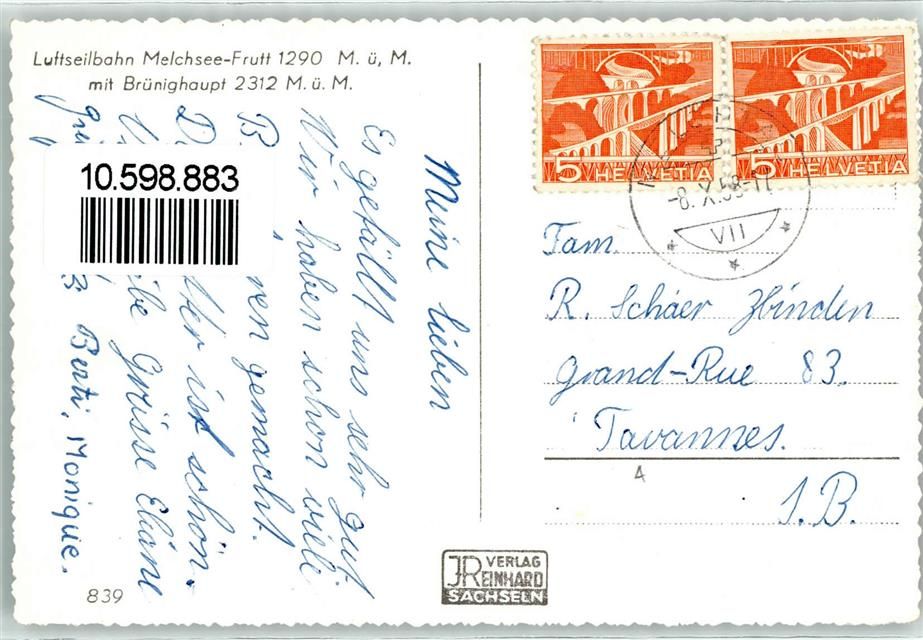 Luftseilbahn Melchsee-Frutt 1290 M. ü, M.
mit Brünighaupt 2312 M. ü. M.
10.598.883
Meine lieben
Es gefällt uns sehr gut
Wir haben schon viele
B ren gemacht.
D tter ist schön.
be Grüsse Eliane
Berti, Monique.
839
5 HELVETIA
5 HELVETIA
-8. X. 58-17
VII
Fam.
R. Schäer Zbinden
Grand-Rue 83.
Tavannes.
J.B.
4
VERLAG
JREINHARD
SACHSELN